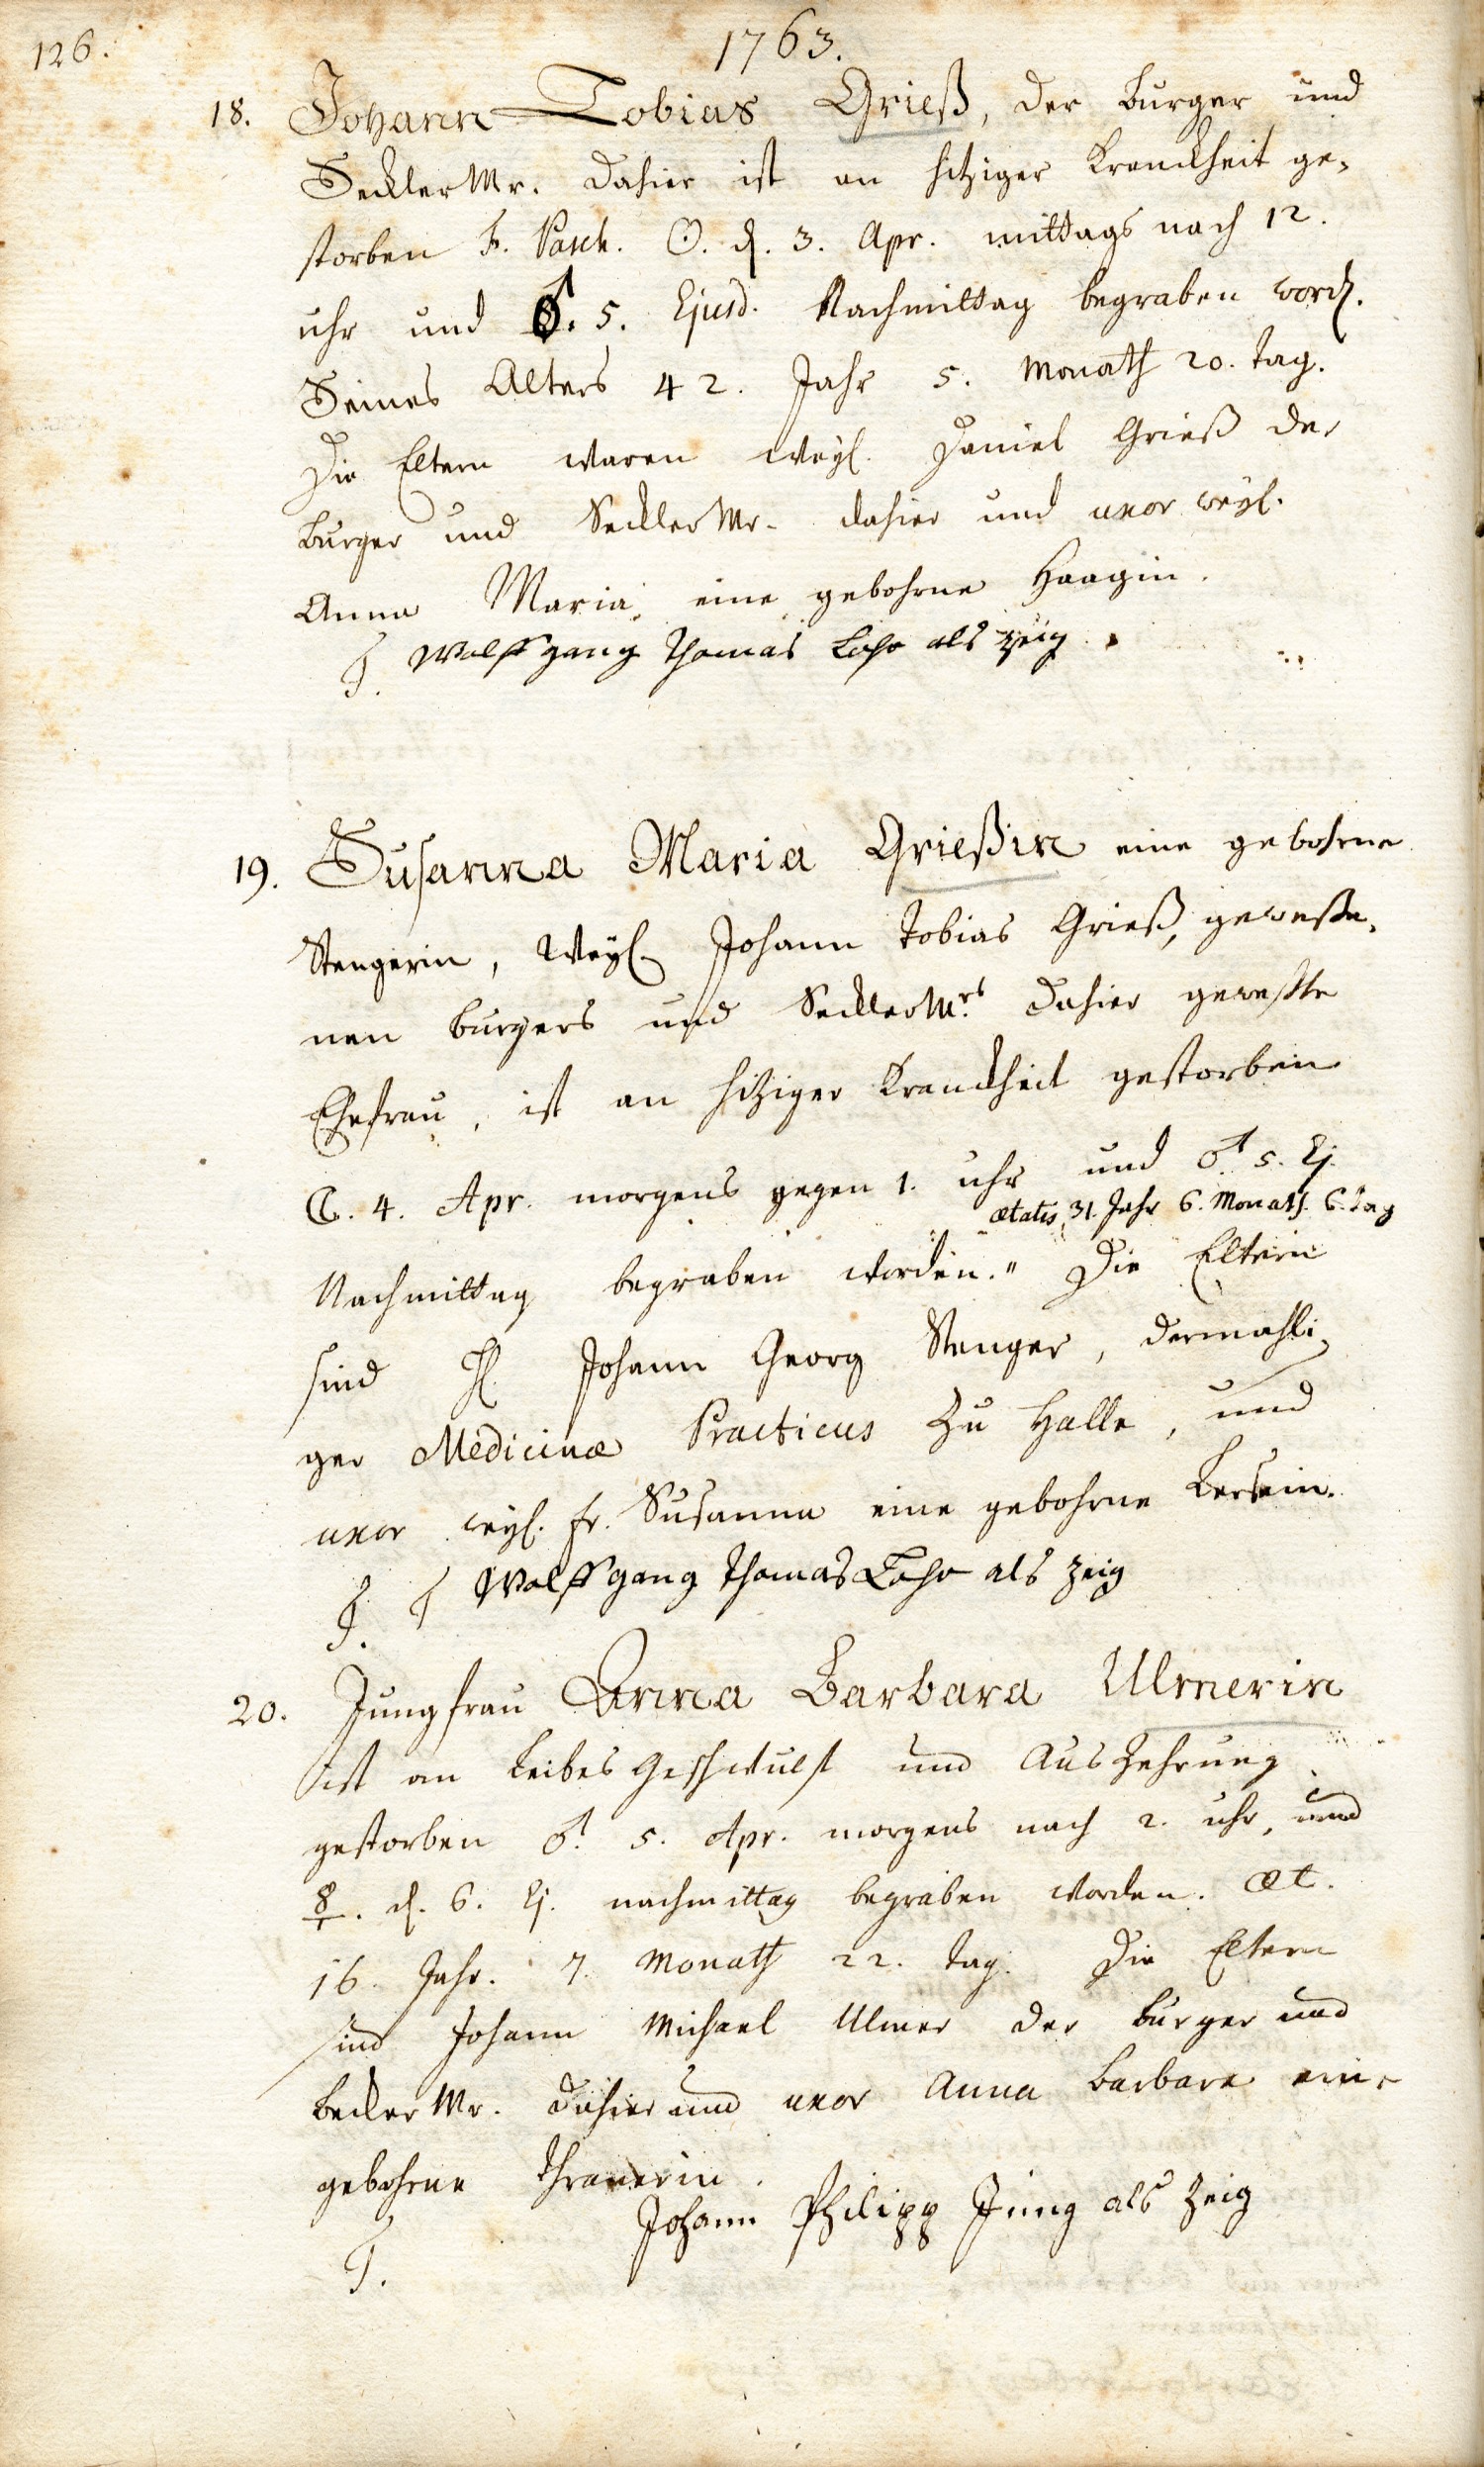 126.
1763.
18. Johann Tobias Grieß, der burger und
Seckler Mr. dahier ist an hitziger Kranckheit ge-
storben F. Pasch. ☉. d. 3. Apr. mittags nach 12.
uhr und ♂. 5. Ejusd. Nachmittag begraben word.
Seines Alters 42. Jahr 5. Monath 20. tag.
Die Eltern waren weyl. Daniel Grieß der
burger und Seckler Mr. dahier und uxor weyl.
Anna Maria, eine gebohrne Haagin.
T. Wolffgang Thomas Lohr als zeüg.
19. Susanna Maria Grießin eine gebohrne
Stengerin, Weyl. Johann Tobias Grieß, geweße-
nen burgers und Seckler Mrs. dahier geweßte
Ehefrau, ist an hitziger Kranckheit gestorben
☾. 4. Apr. morgens gegen 1. uhr und ♂ 5. Ej.
ætatis 31. Jahr 6. Monath. 6. tag
Nachmittag begraben worden." Die Eltern
sind H. Johann Georg Stenger, dermahli-
ger Medicinæ Practicus zu Halle, und
uxor weyl. fr. Susanna eine gebohrne
T. T Wolffgang Thomas Lohr als zeig
20. Jungfrau Anna Barbara Ulmerin
ist an Leibes Geschwulst und Auszehrung
gestorben ♂. 5. Apr. morgens nach 2. uhr, und
☿. d. 6. Ej. nachmittag begraben worden. æt.
16. Jahr. 7. Monath 22. tag. Die Eltern
sind Johann Michael Ulmer der burger und
becker Mr. dahier und uxor Anna Barbara eine
gebohrne
Johann Philipp Jung als zeig
T.